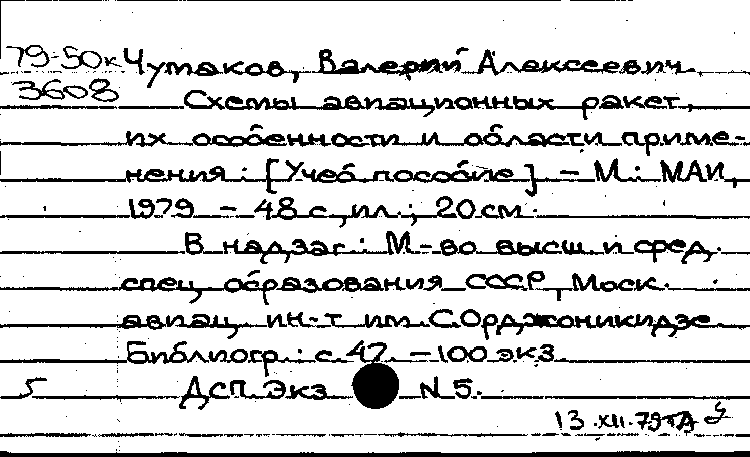 79-50к Чумаков, Валерий Алексеевич.
3608 Схемы авиационных ракет,
их особенности и области приме-
нения: [Учеб. пособие] - М.: МАИ,
1979 - 48 с., ил.; 20 см.
В надзаг.: М-во высш. и сред.
спец. образования СССР, Моск.
авиац. ин-т им. С. Орджоникидзе.
Библиогр.: с. 47. - 100 экз.
5 ДСП. Экз N 5.
13.XII.79